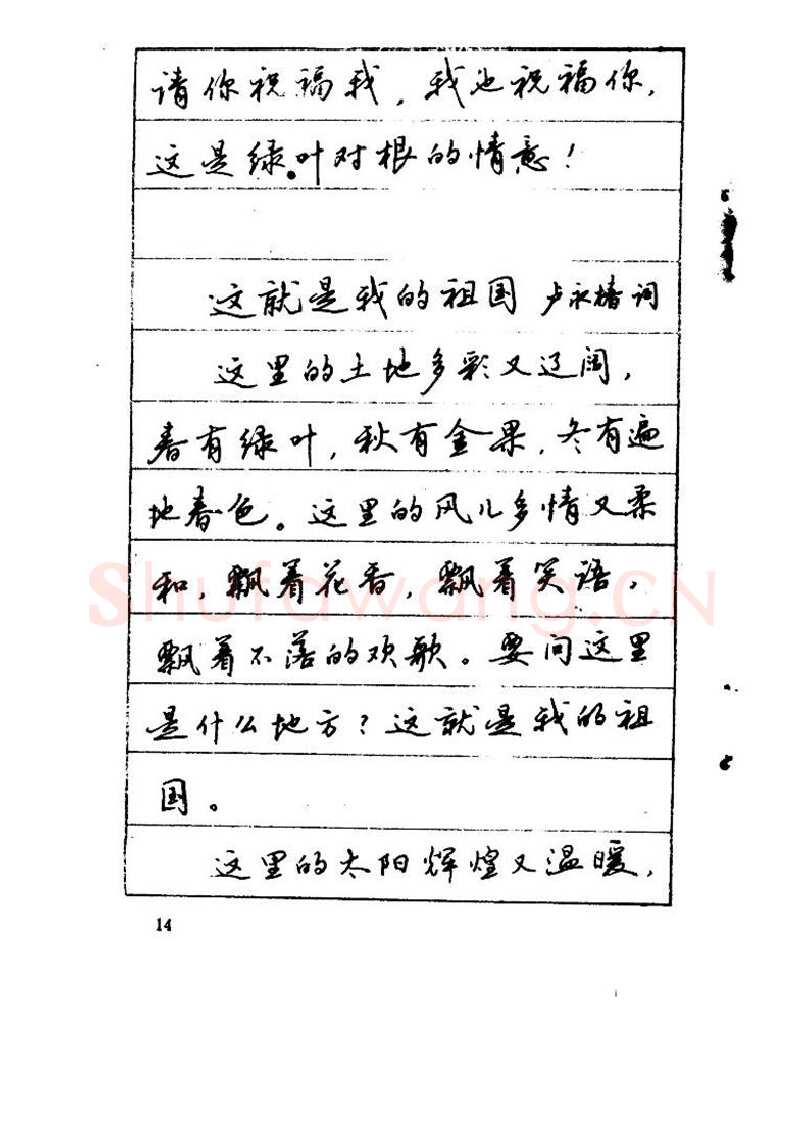 请你祝福我，我也祝福你，
这是绿叶对根的情意！
这就是我的祖国 卢永椿词
这里的土地多彩又辽阔，
春有绿叶，秋有金果，冬有遍
地春色。这里的风儿多情又柔
和，飘着花香，飘着笑语，
飘着不落的欢歌。要问这里
是什么地方？这就是我的祖
国。
这里的太阳辉煌又温暖，
14
Shufawang.CN